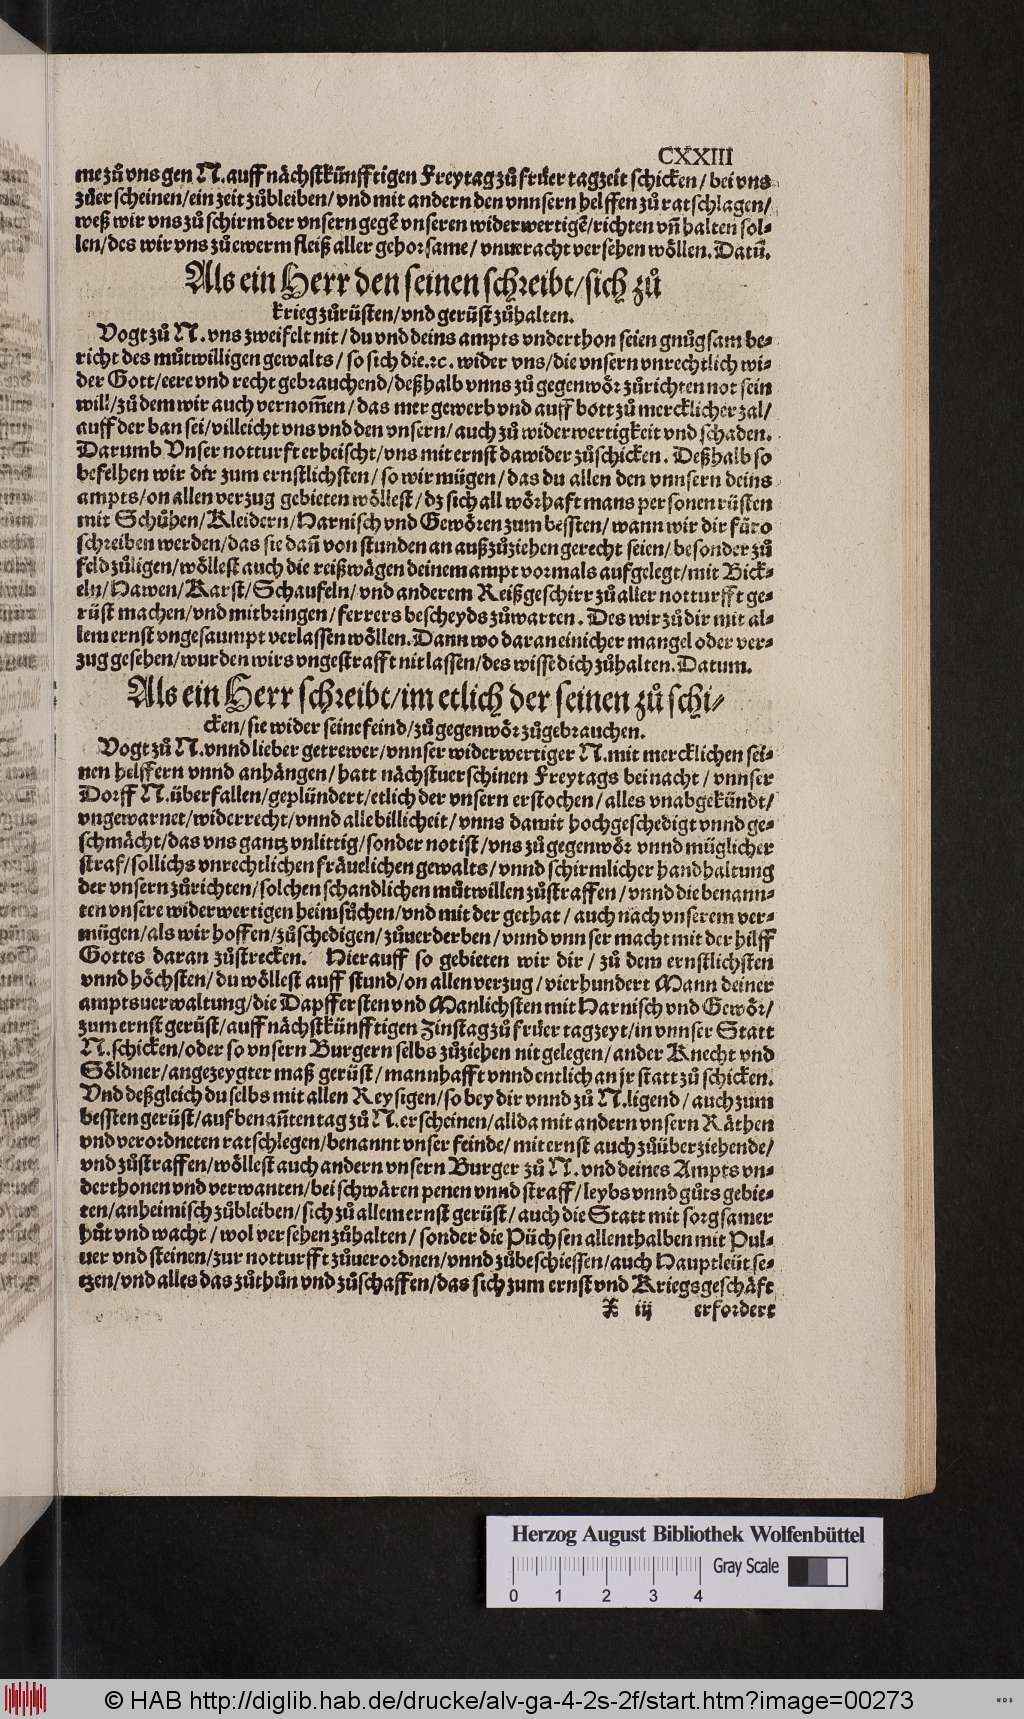 CXXIII
me zů vns gen N. auff nächstkünfftigen Freytag zů früer tagzeit schicken / bei vns
zůerscheinen / ein zeit zůbleiben / vnd mit andern den vnnsern helffen zů ratschlagen /
weß wir vns zů schirm der vnsern gegē vnseren widerwertigē / richten vñ halten sol⸗
len / des wir vns zů ewerm fleiß aller gehorsame / vnueracht versehen wöllen. Datū.
Als ein Herr den seinen schreibt / sich zů
krieg zůrüsten / vnd gerüst zůhalten.
Vogt zů N. vns zweifelt nit / du vnd deins ampts vnderthon seien gnůgsam be⸗
richt des můtwilligen gewalts / so sich die. ꝛc. wider vns / die vnsern vnrechtlich wi⸗
der Gott / eere vnd recht gebrauchend / deßhalb vnns zů gegenwör zůrichten not sein
will / zů dem wir auch vernom̄en / das mer gewerb vnd auff bott zů mercklicher zal /
auff der ban sei / villeicht vns vnd den vnsern / auch zů widerwertigkeit vnd schaden.
Darumb Vnser notturft erheischt / vns mit ernst dawider zůschicken. Deßhalb so
befelhen wir dir zum ernstlichsten / so wir mügen / das du allen den vnnsern deins
ampts / on allen verzug gebieten wöllest / dz sich all wörhaft mans personen rüsten
mit Schůhen / Kleidern / Harnisch vnd Gewören zum bessten / wann wir dir füro
schreiben werden / das sie dañ von stunden an außzůziehen gerecht seien / besonder zů
feld zůligen / wöllest auch die reißwägen deinem ampt vormals aufgelegt / mit Bick⸗
eln / Hawen / Karst / Schaufeln / vnd anderem Reißgeschirr zů aller notturfft ge⸗
rüst machen / vnd mitbringen / ferrers bescheyds zůwarten. Des wir zů dir mit al⸗
lem ernst vngesaumpt verlassen wöllen. Dann wo daran einicher mangel oder ver⸗
zug gesehen / wurden wirs vngestrafft nit lassen / des wisse dich zůhalten. Datum.
Als ein Herr schreibt / im etlich der seinen zů schi⸗
cken / sie wider seine feind / zů gegenwör zůgebrauchen.
Vogt zů N. vnnd lieber getrewer / vnnser widerwertiger N. mit mercklichen sei⸗
nen helffern vnnd anhängen / hatt nächstuerschinen Freytags bei nacht / vnnser
Dorff N. überfallen / geplündert / etlich der vnsern erstochen / alles vnabgekündt /
vngewarnet / widerrecht / vnnd alle billicheit / vnns damit hochgeschedigt vnnd ge⸗
schmächt / das vns gantz vnlittig / sonder not ist / vns zů gegenwör vnnd müglicher
straf / sollichs vnrechtlichen fräuelichen gewalts / vnnd schirmlicher handhaltung
der vnsern zůrichten / solchen schandlichen můtwillen zůstraffen / vnnd die benann⸗
ten vnsere widerwertigen heimsůchen / vnd mit der gethat / auch nach vnserem ver⸗
mügen / als wir hoffen / zůschedigen / zůuerderben / vnnd vnnser macht mit der hilff
Gottes daran zůstrecken. Hierauff so gebieten wir dir / zů dem ernstlichsten
vnnd höchsten / du wöllest auff stund / on allen verzug / vierhundert Mann deiner
amptsuerwaltung / die Dapffersten vnd Manlichsten mit Harnisch vnd Gewör /
zum ernst gerüst / auff nächstkünfftigen Zinstag zů früer tagzeyt / in vnnser Statt
N. schicken / oder so vnsern Burgern selbs zůziehen nit gelegen / ander Knecht vnd
Söldner / angezeygter maß gerüst / mannhafft vnnd entlich an jr statt zů schicken.
Vnd deßgleich du selbs mit allen Reysigen / so bey dir vnnd zů N. ligend / auch zum
bessten gerüst / auf benañten tag zů N. erscheinen / allda mit andern vnsern Räthen
vnd verordneten ratschlegen / benannt vnser feinde / mit ernst auch zůüberziehende /
vnd zůstraffen / wöllest auch andern vnsern Burger zů N. vnd deines Ampts vn⸗
derthonen vnd verwanten / bei schwären penen vnnd straff / leybs vnnd gůts gebie⸗
ten / anheimisch zůbleiben / sich zů allem ernst gerüst / auch die Statt mit sorgsamer
hůt vnd wacht / wol versehen zůhalten / sonder die Püchsen allenthalben mit Pul⸗
uer vnd steinen / zur notturfft zůuerordnen / vnnd zůbeschiessen / auch Hauptleüt se⸗
tzen / vnd alles das zůthůn vnd zůschaffen / das sich zum ernst vnd Kriegsgeschäft
X iij erfordert
Herzog August Bibliothek Wolfenbüttel
Gray Scale
0 1 2 3 4
© HAB http://diglib.hab.de/drucke/alv-ga-4-2s-2f/start.htm?image=00273